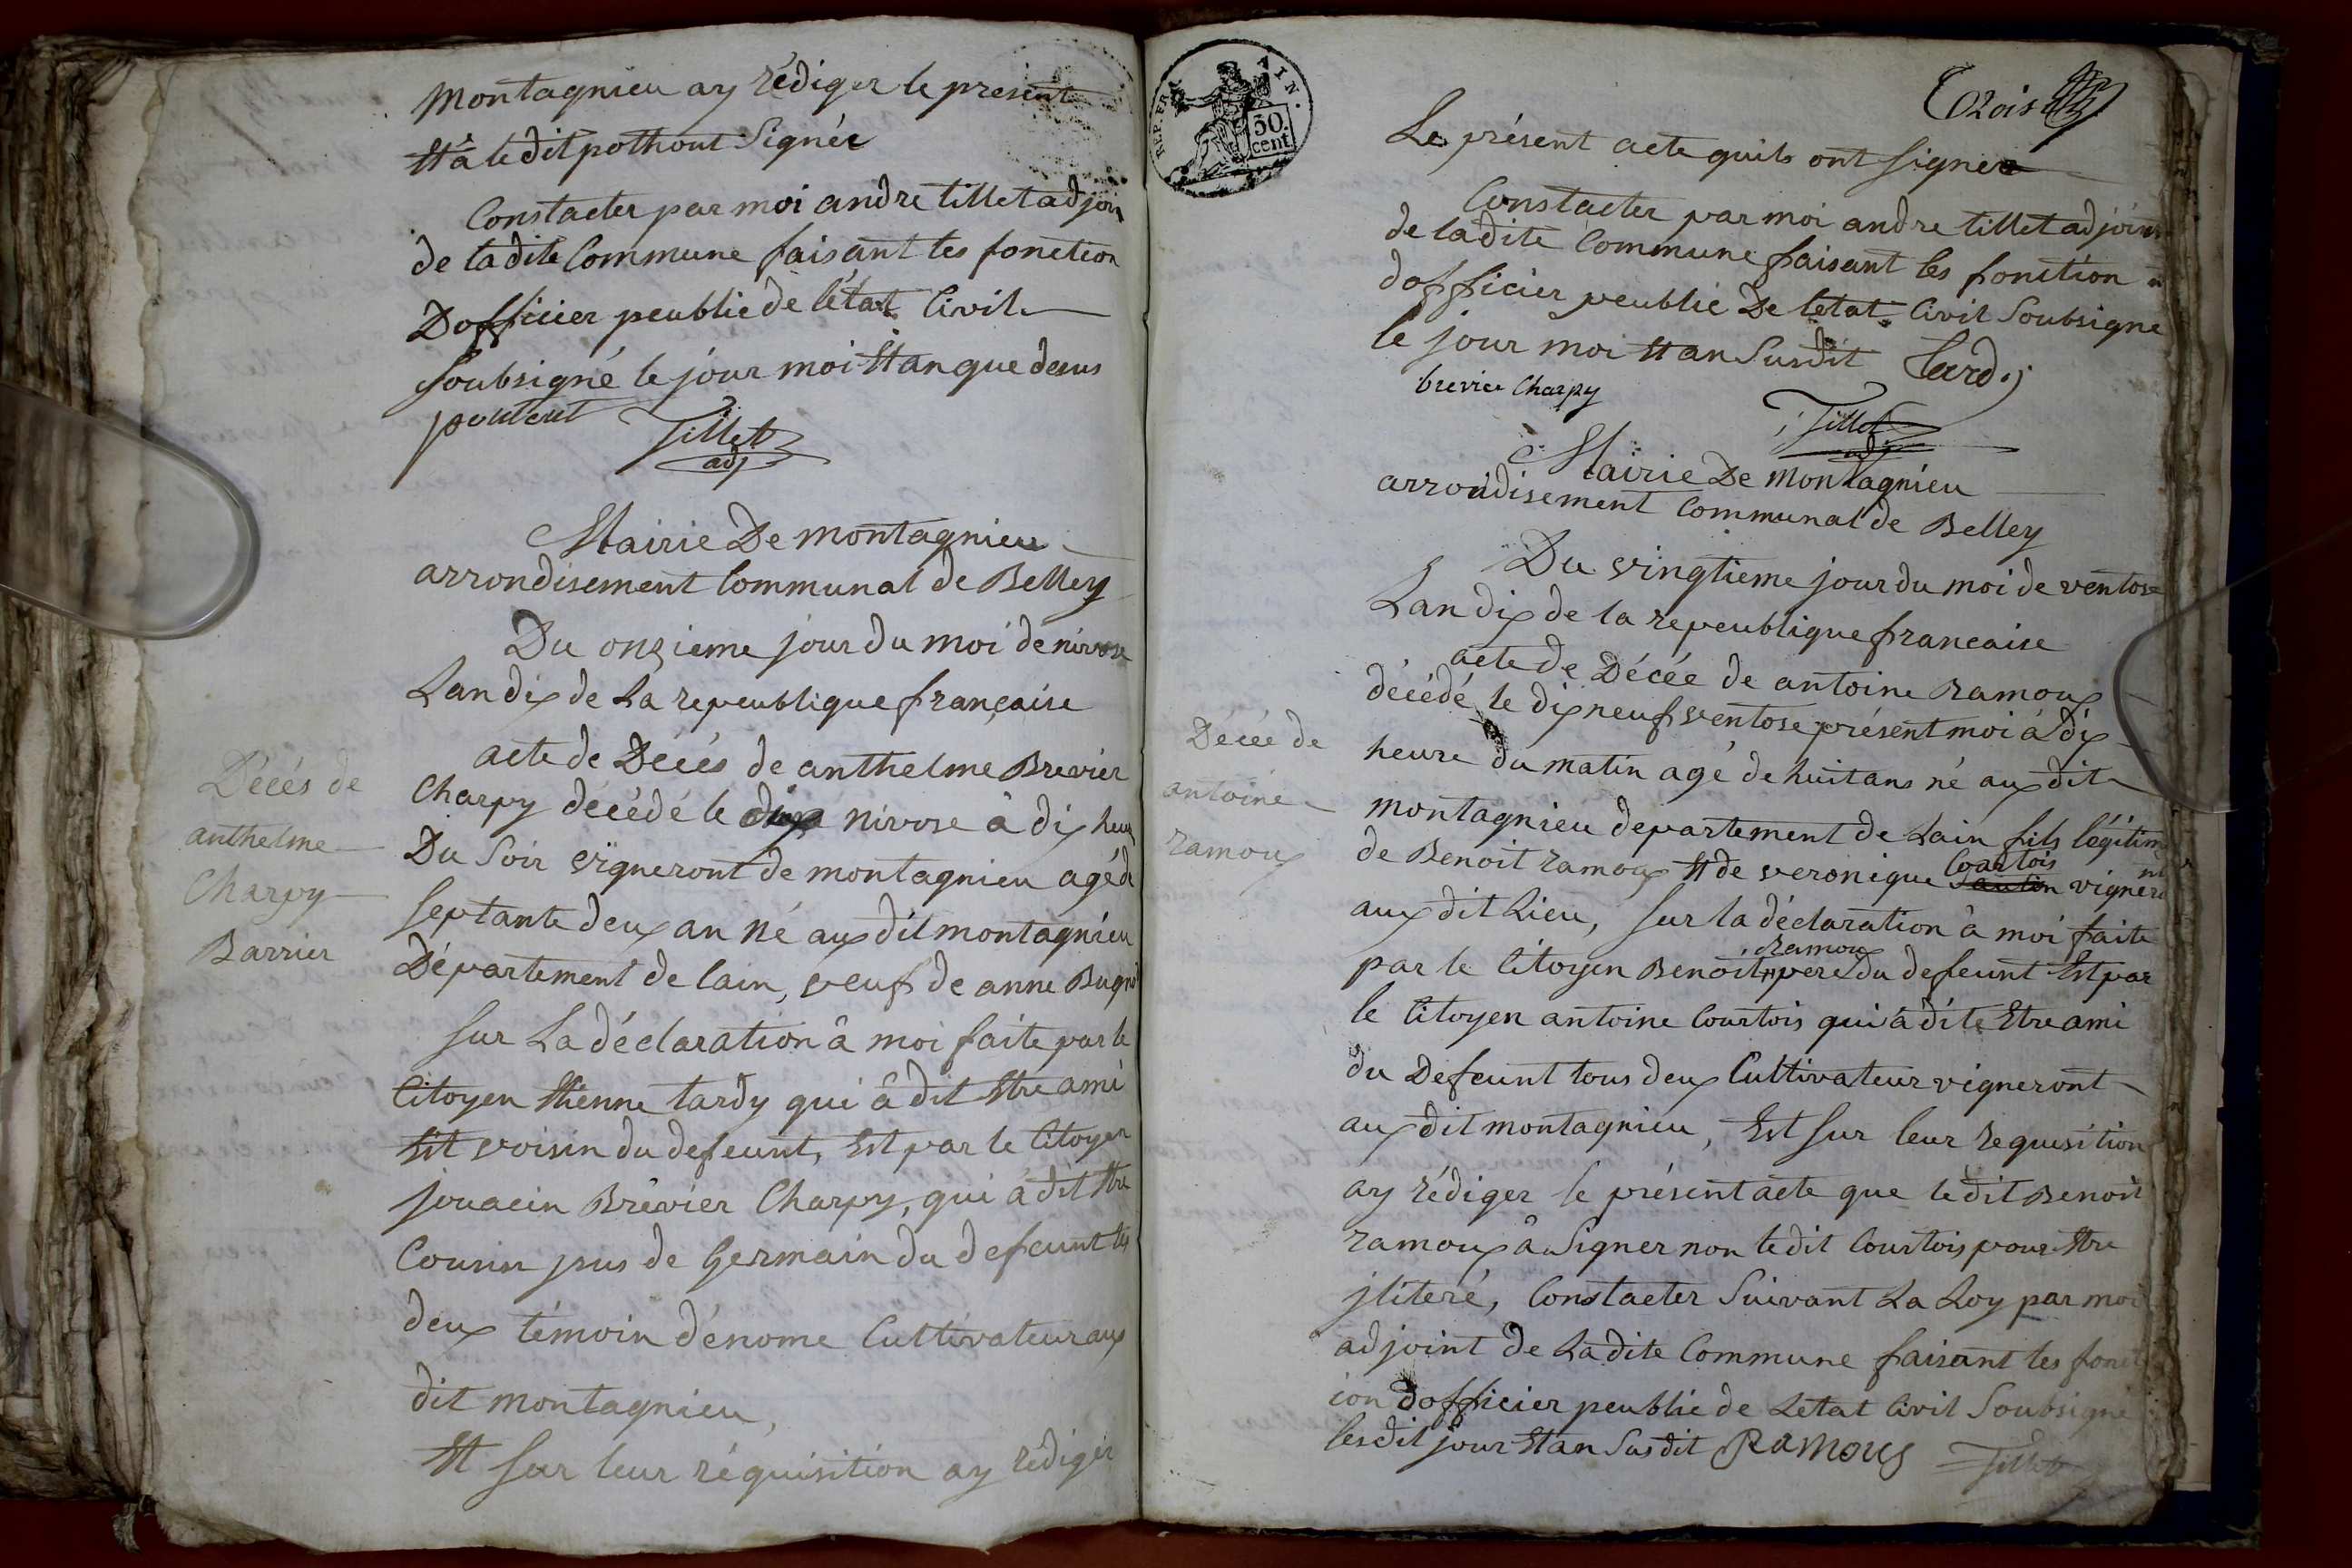 montagnieu ay rédiger le present
Et à ledit pothout Signée
Constacter par moi andre tillet adjoin
de ladite Commune faisant les fonction
Dofficier peublic de létat Civil
soubsigné le jour moi Et an que desus
poutout Tillet
adj
Mairie De montagnieu
arrondisement Communal de Belley
Du onzieme jour du moi de nivose
Lan dix de La repeublique française
acte de Décés de anthelme Brevier
Charpy décédé le dix nivose à dix heur
Du Soir vigneront de montagnieu agé de
septante deux an né aux dit montagnieu
Département de lain, veuf de anne Bugni
Décés de
anthelme
Charpy
Barrier
sur La déclaration à moi faite par le
Citoyen Etienne tardy qui à dit Etre ami
Est voisin du defeunt, Est par le Citoyen
jouacin Brevier Charpy, qui à dit Etre
Cousin jsus de Germain du defeunt les
deux témoin dénome Cultivateur aux
dit montagnieu,
Et sur leur réquisition ay rédiger
REP. FRA. AIN.
30
cent.
Trois
Le présent acte quils ont signer
Constacter par moi andre tillet adjoint
de ladite Commune faisant les fonction
dofficier peublic De letat Civil Soubsigne
le jour moi Et an Susdit Tardj
brevier Charpy
Tillet
adj
Mairie De montagnieu
arrondisement Communal de Belley
Du vingtieme jour du moi de ventose
Lan dix de la repeublique francaise
acte de Décée de antoine ramoux
décédé le dix neuf ventose présent moi à dix
heure du matin agé de huit ans né aux dit
montagnieu departement de Lain fils légitim
Courtois
de Benoit ramoux Et de veronique vigneront
aux dit Lieu, sur la déclaration à moi faite
Ramoux
par le Citoyen Benoit pere du defeunt Est par
le Citoyen antoine Courtois qui à dite Etre ami
du Defeunt tous deux Cultivateur vigneront
aux dit montagnieu, Est sur leur requisition
ay rédiger le présent acte que ledit Benoit
ramoux à Signer non ledit Courtois pour Etre
jliteré, Constacter Suivant La Loy par moi
adjoint de Ladite Commune faisant les fonct
ion dofficier peublic de Letat Civil Soubsigné
lesdit jour Et an Susdit Ramoux Tillet
Décée de
antoine
ramoux